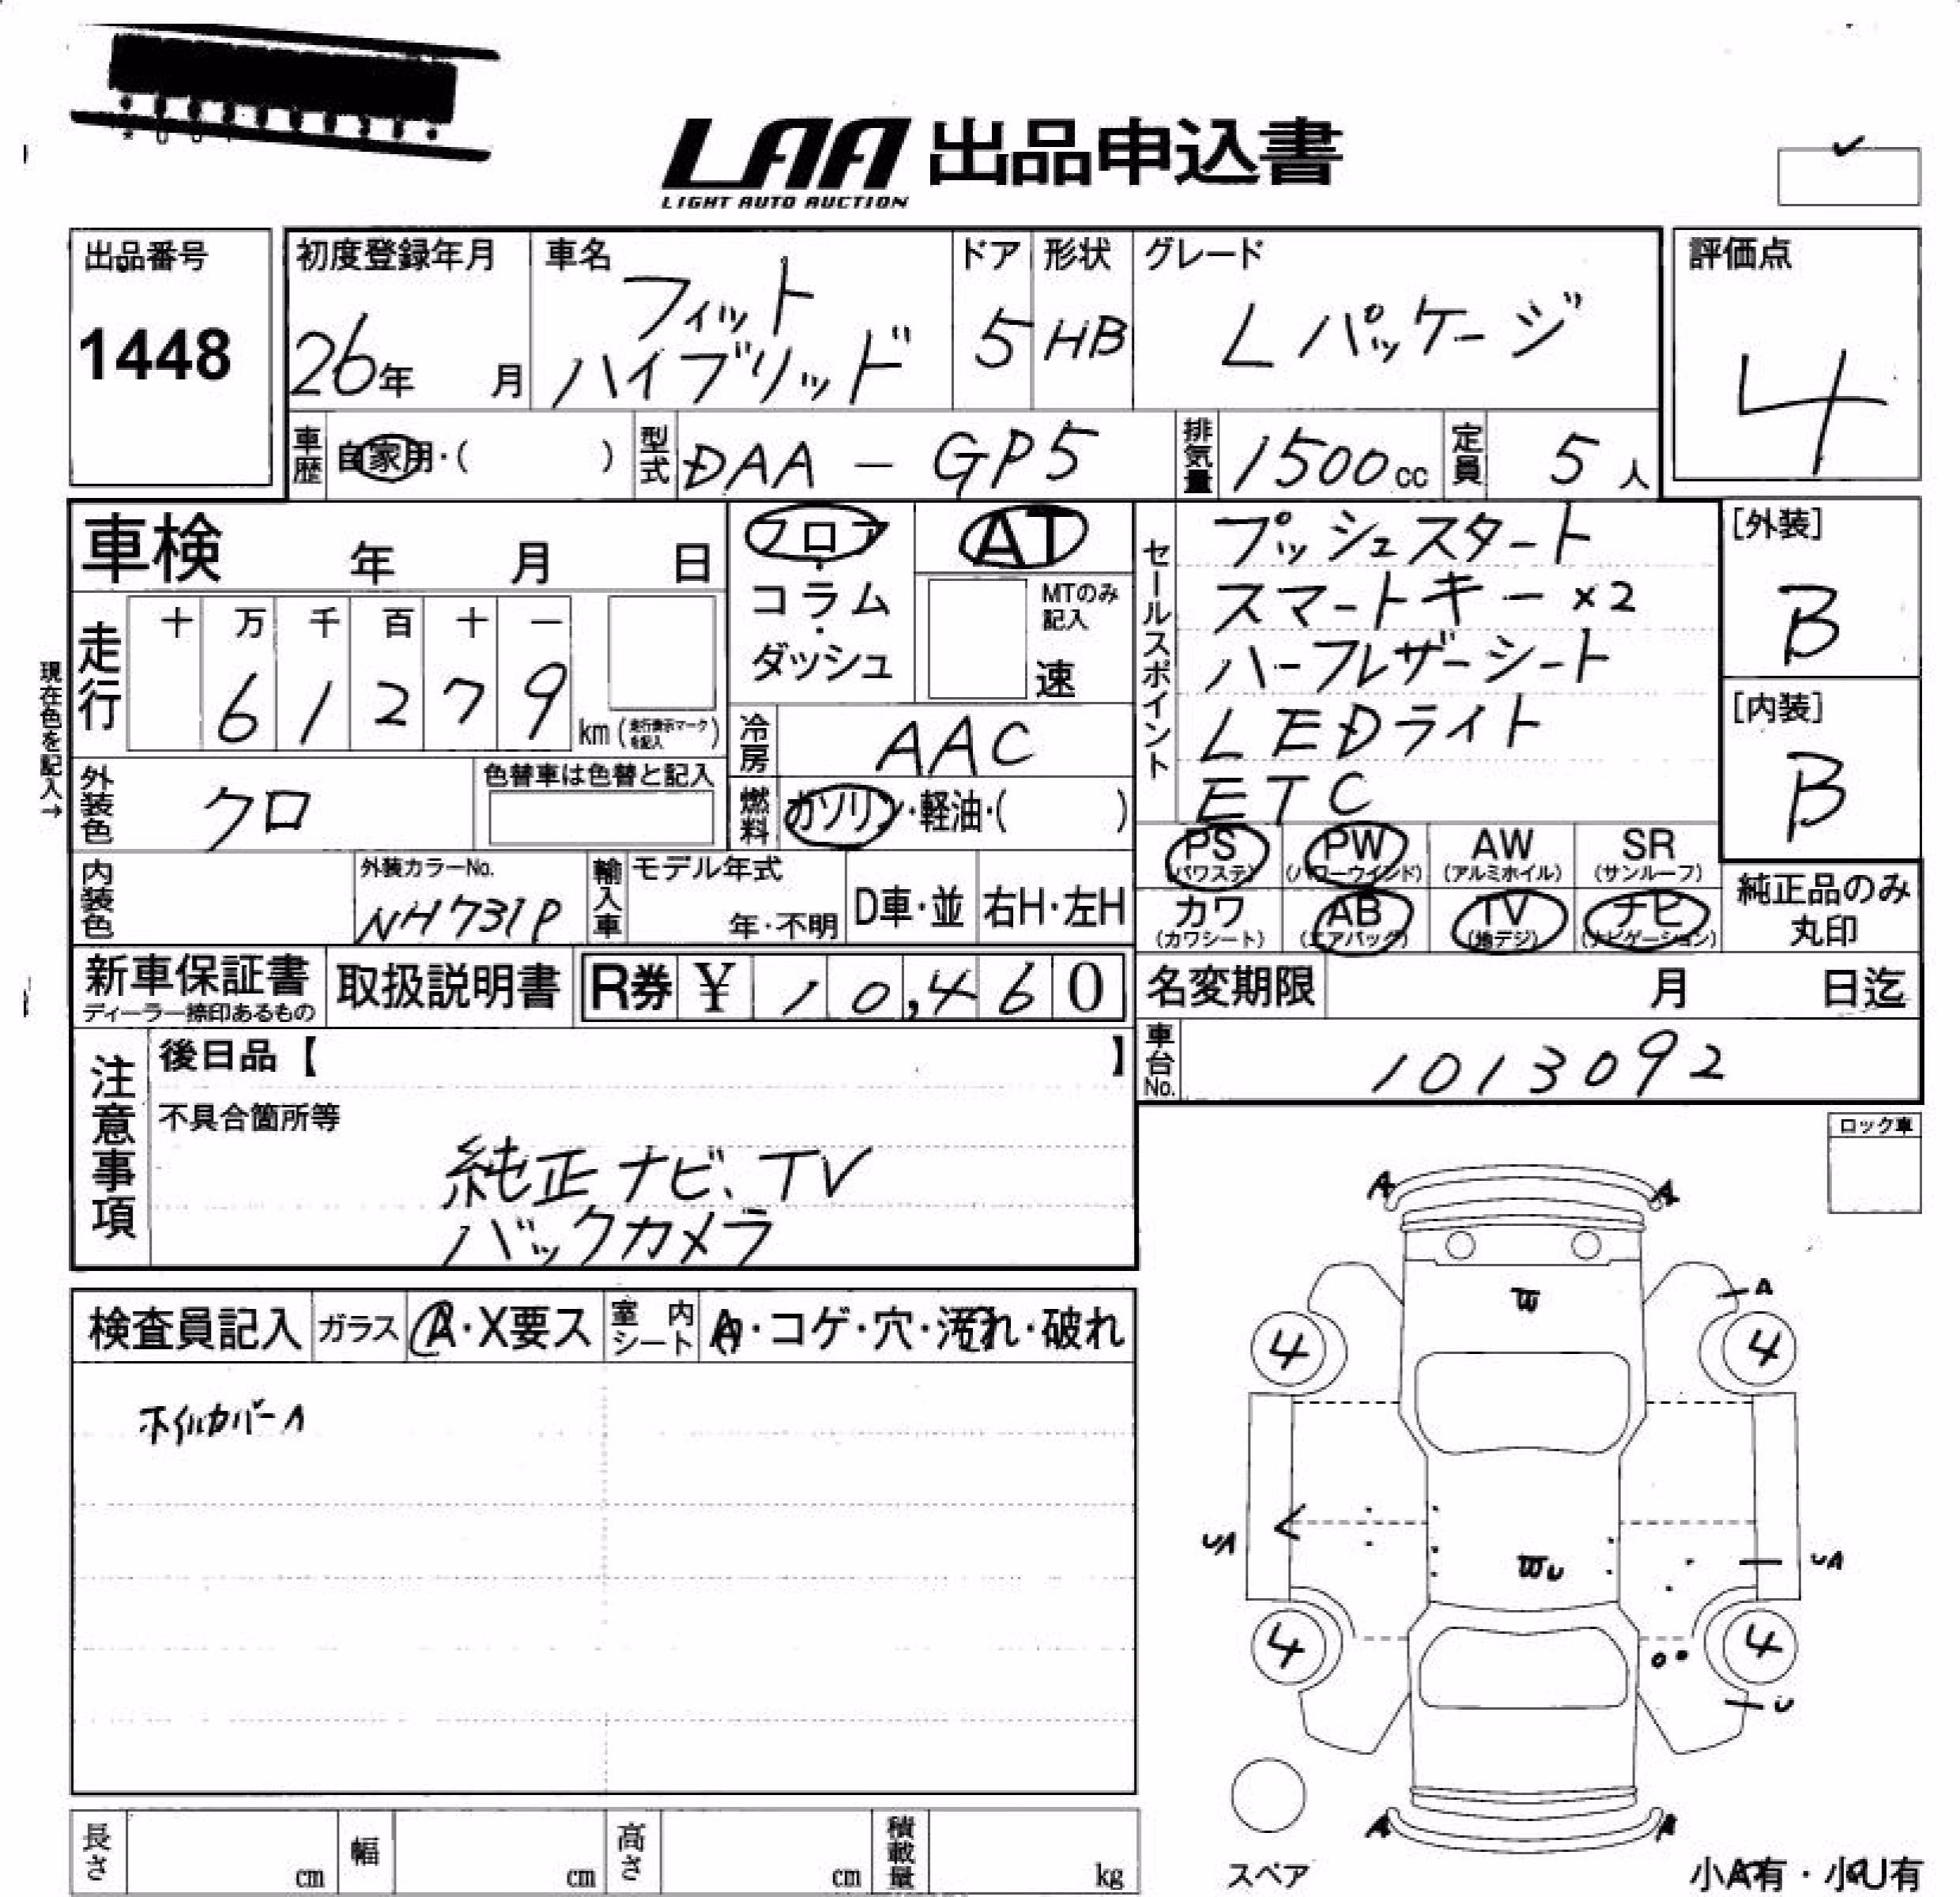 LAA 出品申込書
LIGHT AUTO AUCTION
出品番号
1448
初度登録年月
26年 月
車名
フィット
ハイブリッド
ドア
5
形状
HB
グレード
Lパッケージ
評価点
4
車歴 自家用・( )
型式 DAA - GP5
排気量 1500cc
定員 5人
車検 年 月 日
フロア
・
コラム
・
ダッシュ
AT
MTのみ
記入
速
セールスポイント
プッシュスタート
スマートキー×2
ハーフレザーシート
LEDライト
ETC
[外装]
B
[内装]
B
現在色を記入→
走行
十 万 千 百 十 一
6 1 2 7 9
km (走行表示マークを記入)
冷房 AAC
外装色 クロ
色替車は色替と記入
燃料 ガソリン・軽油・( )
PS (パワステ)
PW (パワーウインド)
AW (アルミホイル)
SR (サンルーフ)
カワ (カワシート)
AB (エアバッグ)
TV (地デジ)
ナビ (ナビゲーション)
純正品のみ
丸印
内装色
外装カラーNo.
NH731P
輸入車
モデル年式
年・不明
D車・並
右H・左H
新車保証書
ディーラー捺印あるもの
取扱説明書
R券 ¥ 10,460
名変期限 月 日迄
車台No. 1013092
注意事項
後日品【 】
不具合箇所等
純正ナビ、TV
バックカメラ
ロック車
検査員記入
ガラス A・X要ス
室内シート
・コゲ・穴・汚れ・破れ
ホイルカバーA
A A
W
A
4 4
UA
Wu
UA
4 4
U
A A
スペア
小A有・小U有
長さ cm
幅 cm
高さ cm
積載量 kg